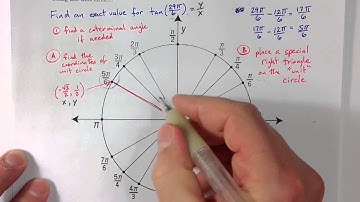 Find an exact value for tan(29π/6) = y/x
① find a coterminal angle if needed
29π/6 - 12π/6 = 17π/6
17π/6 - 12π/6 = 5π/6
Ⓐ find the coordinates of unit circle
(-√3/2, 1/2)
x, y
Ⓑ place a special right triangle on the "unit" circle
y
2π/3
3π/4
5π/6
π
7π/6
5π/4
4π/3
π/3
π/4
π/6
x